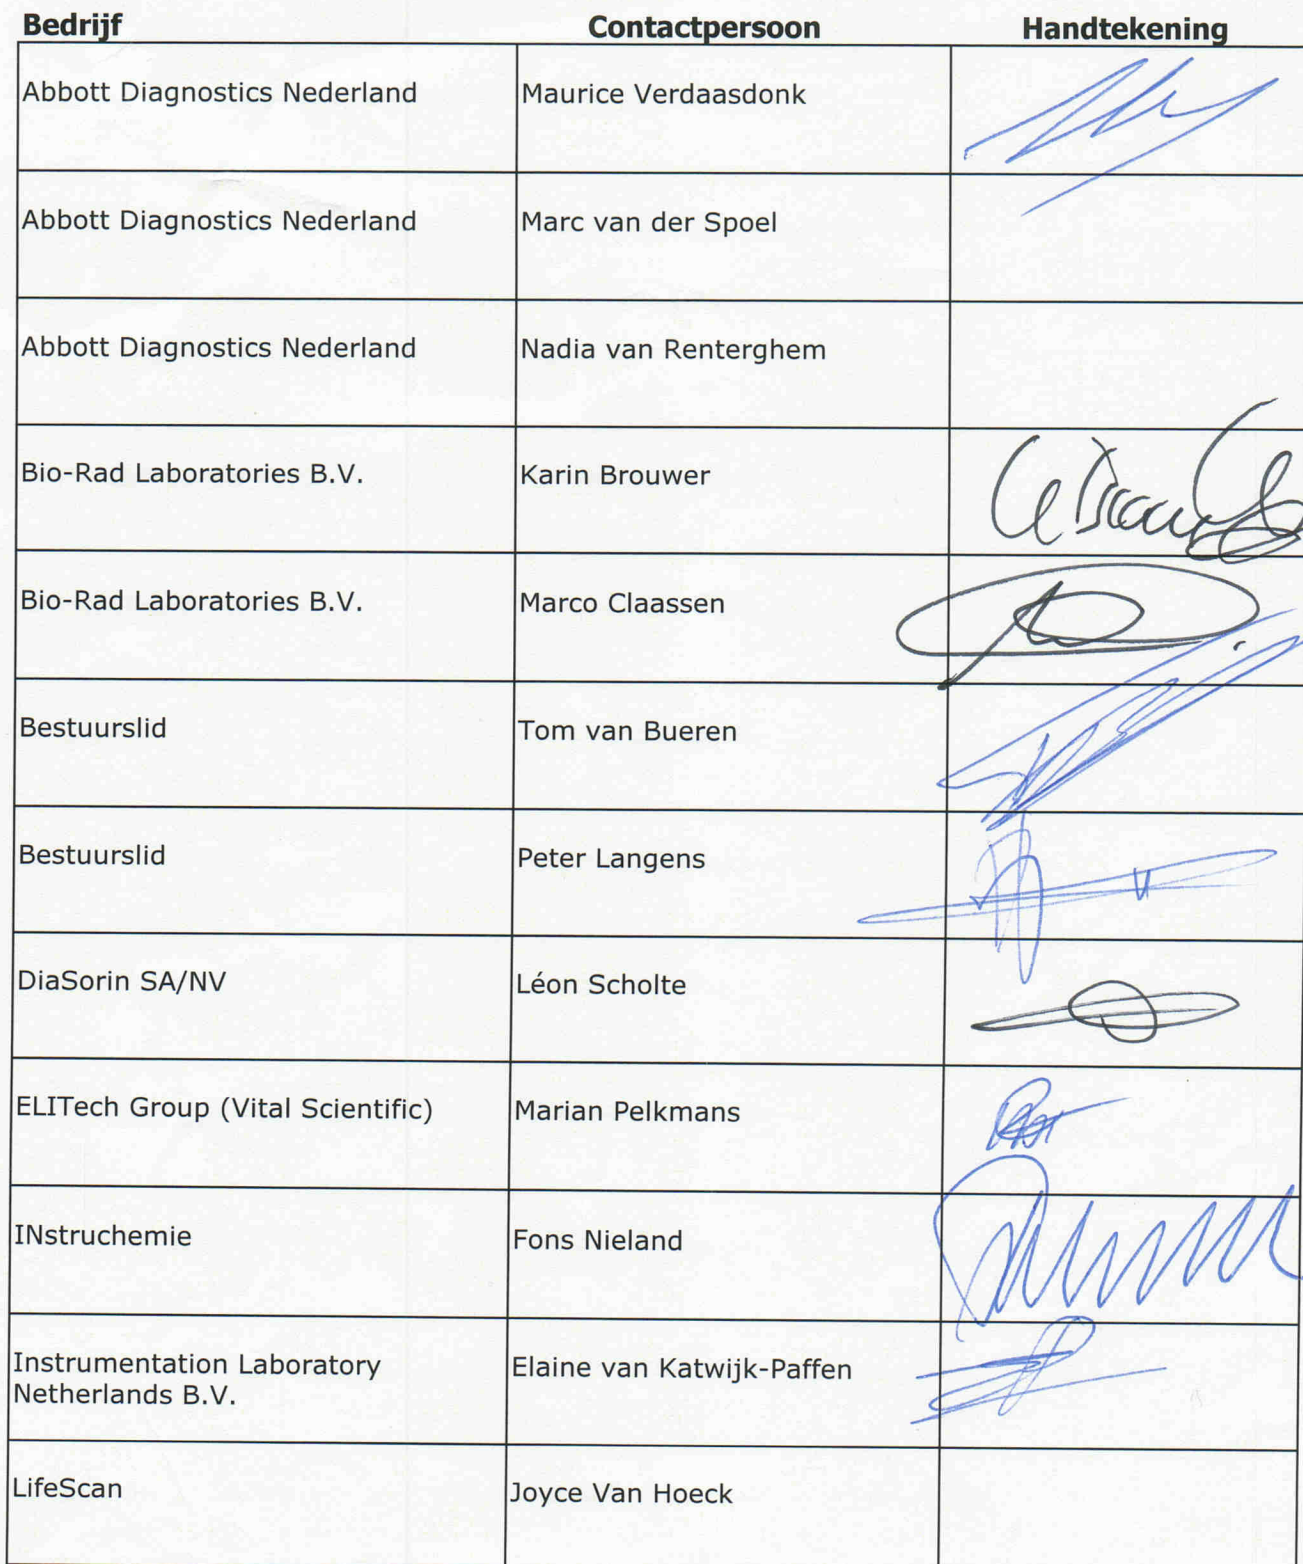 Bedrijf Contactpersoon Handtekening
Abbott Diagnostics Nederland Maurice Verdaasdonk
Abbott Diagnostics Nederland Marc van der Spoel
Abbott Diagnostics Nederland Nadia van Renterghem
Bio-Rad Laboratories B.V. Karin Brouwer
Bio-Rad Laboratories B.V. Marco Claassen
Bestuurslid Tom van Bueren
Bestuurslid Peter Langens
DiaSorin SA/NV Léon Scholte
ELITech Group (Vital Scientific) Marian Pelkmans
INstruchemie Fons Nieland
Instrumentation Laboratory Elaine van Katwijk-Paffen
Netherlands B.V.
LifeScan Joyce Van Hoeck